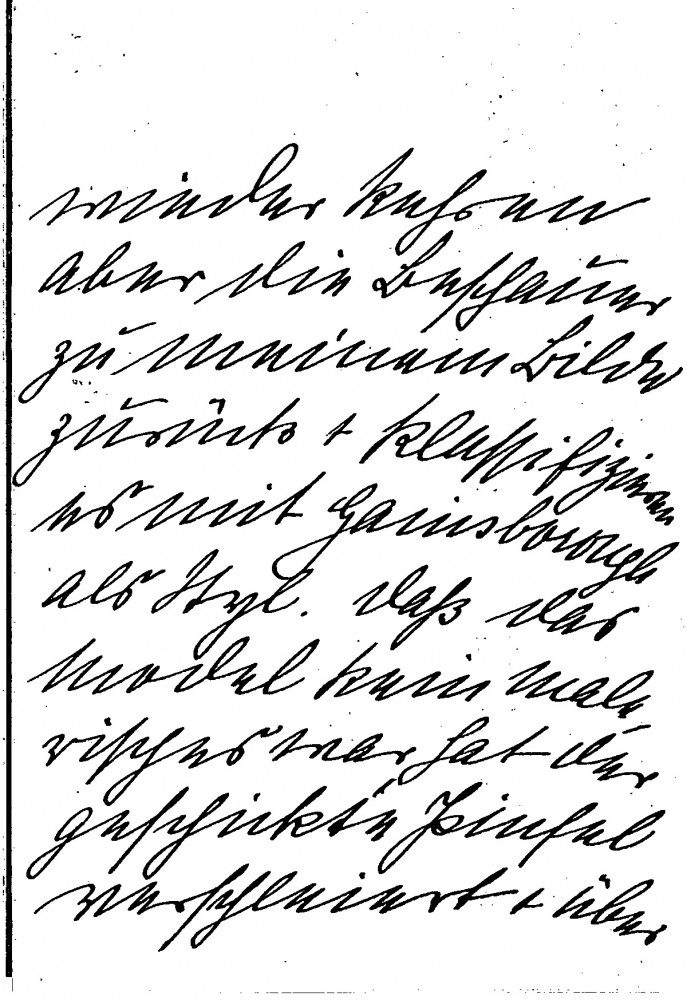 wieder kehren
aber die Beschauer
zu meinem Bilde
zurück + klassifizieren
es mit Gainsborough
als Styl. daß das
Model kein male
risches war hat der
geschickte Pinsel
verschleiert + über